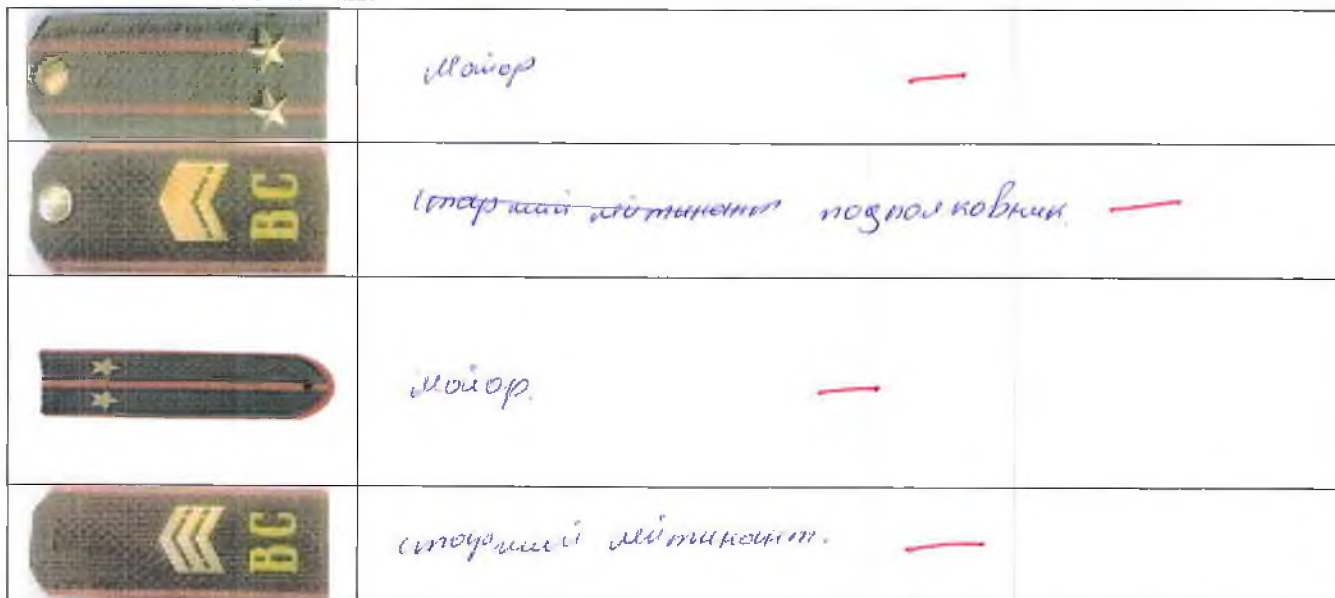 майор
ВС
старший лейтинант подполковник.
майор.
ВС
старший лейтинант.